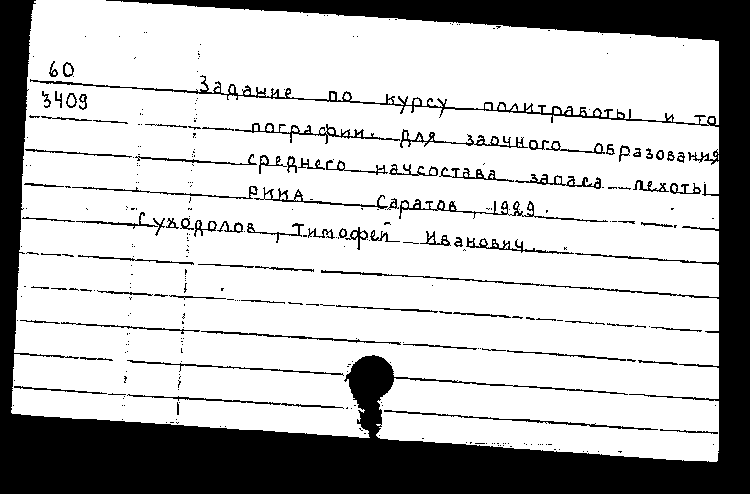 60
Задание по курсу политработы и то
3409
пографии. для заочного образования
среднего начсостава запаса пехоты
РККА. Саратов, 1929.
Суходолов, Тимофей Иванович.